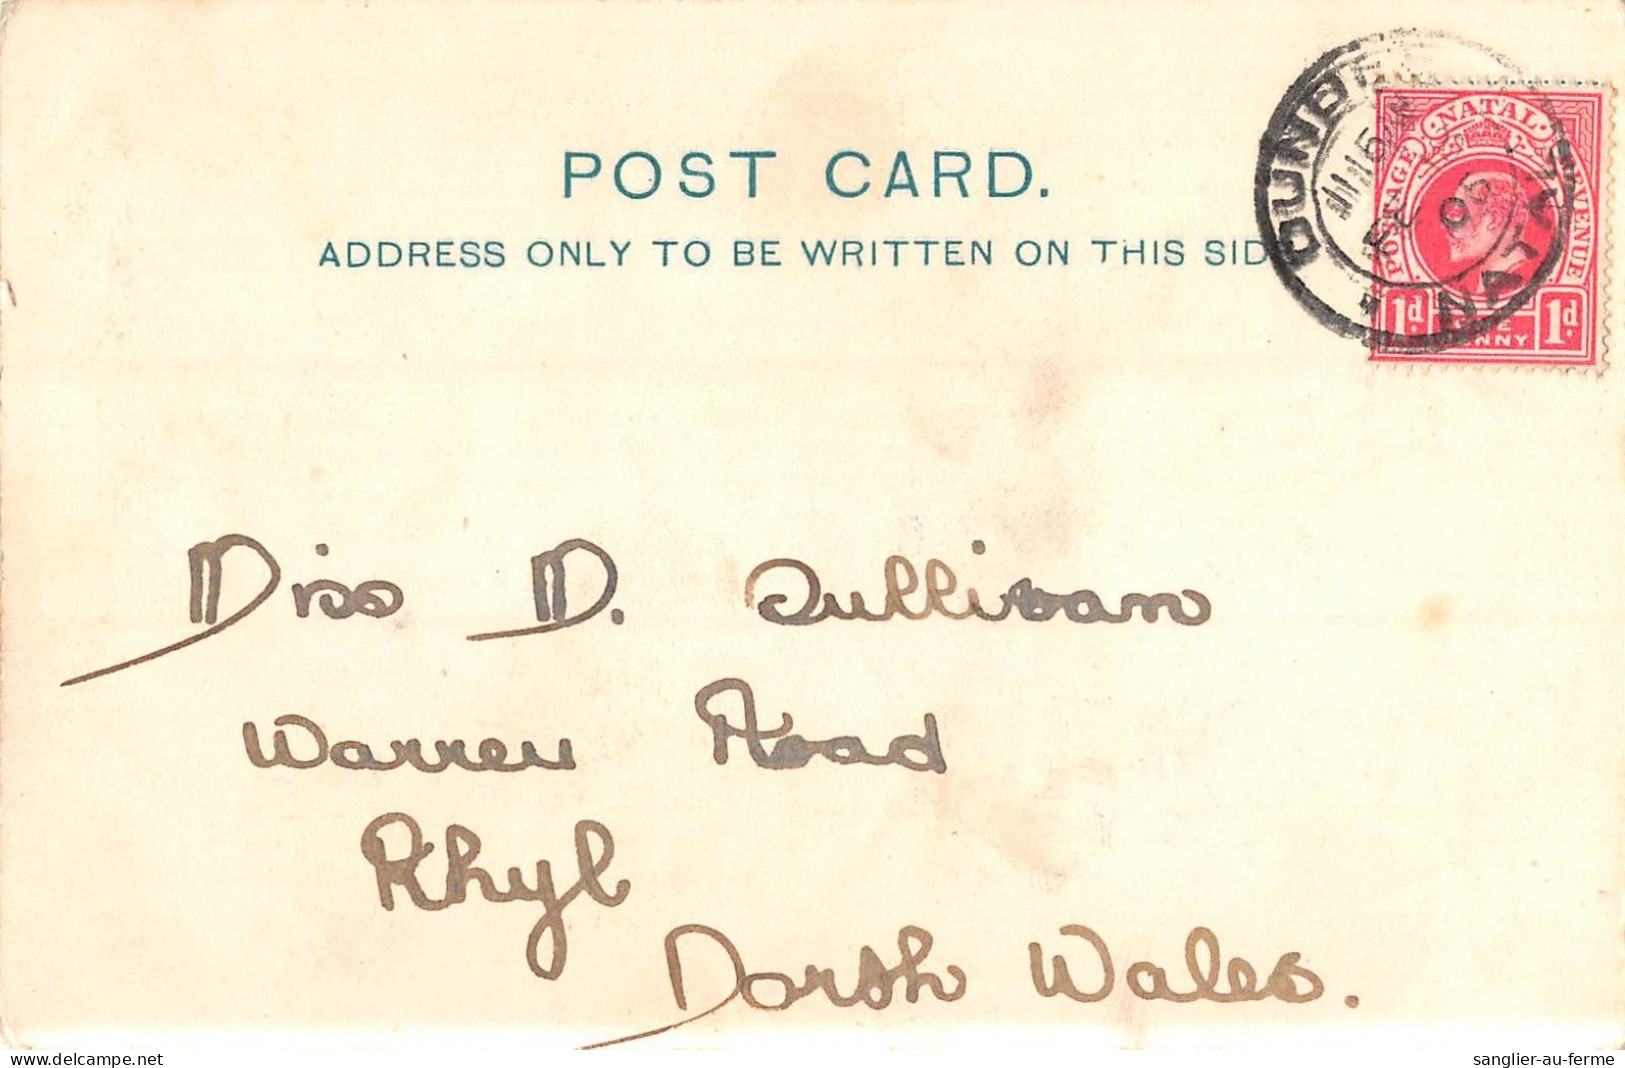 POST CARD.
ADDRESS ONLY TO BE WRITTEN ON THIS SID
DUNDEE
NATAL
05
NATAL
POSTAGE
REVENUE
1d
1d
ONE
PENNY
Miss D. Sullivan
Warren Road
Rhyl
North Wales.
delcampe.net
sanglier-au-ferme